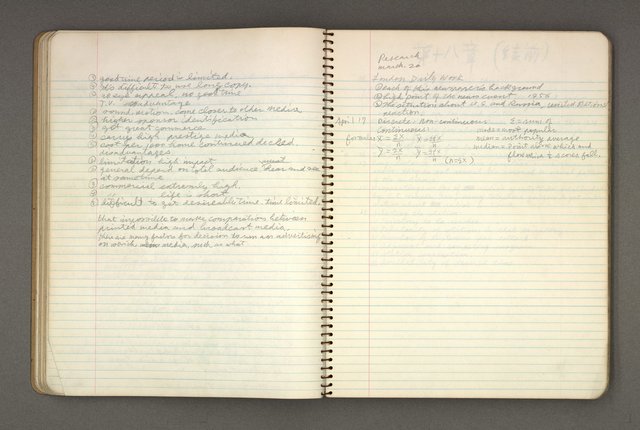 ① good time period is limited.
② It's difficult to use long copy.
③ no eye appeal, no good time
T.V. advantage
① sound, action come closer to older media
② higher sponsor identification
③ get great commerce
④ carry high prestige media
⑤ cost per 1000 home
disadvantages
① limitation high impact
② general depend on total audience hear and see
at sometime
③ commercial extremely high.
④ " life is short
⑤ difficult to get desireable time. time limited.
that impossible to make comparison between
printed media and broadcast media,
there are many factors for decision to run an advertising
on which media, such as what
第十八章
Research
March 20
London Daily Work
① each of this newspaper's background
② high point of the news event 1956
③ the situation about U.S. and Russia, United Nations
election
April 17 Discrete: non-continuous Σ = sum of
continuous: mode = most popular
formular mean = authority average
median = Point with which and
flow scores fall.